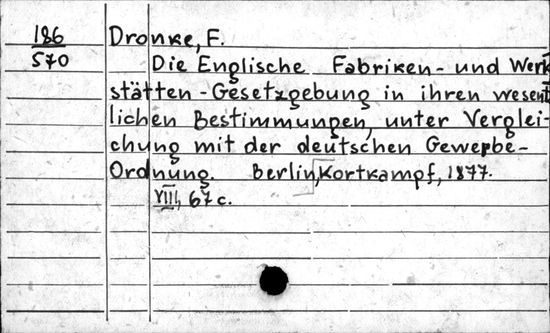 186
570
Dronke, F.
Die Englische Fabriken- und Werk
stätten-Gesetzgebung in ihren wesent
lichen Bestimmungen, unter Verglei-
chung mit der deutschen Gewerbe-
Ordnung. Berlin, Kortkampf, 1877.
VIII, 67 c.